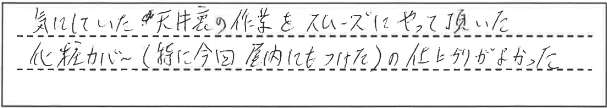 気にしていた天井裏の作業をスムーズにやって頂いた
化粧カバー(特に今回屋内にもつけた)の仕上りがよかった